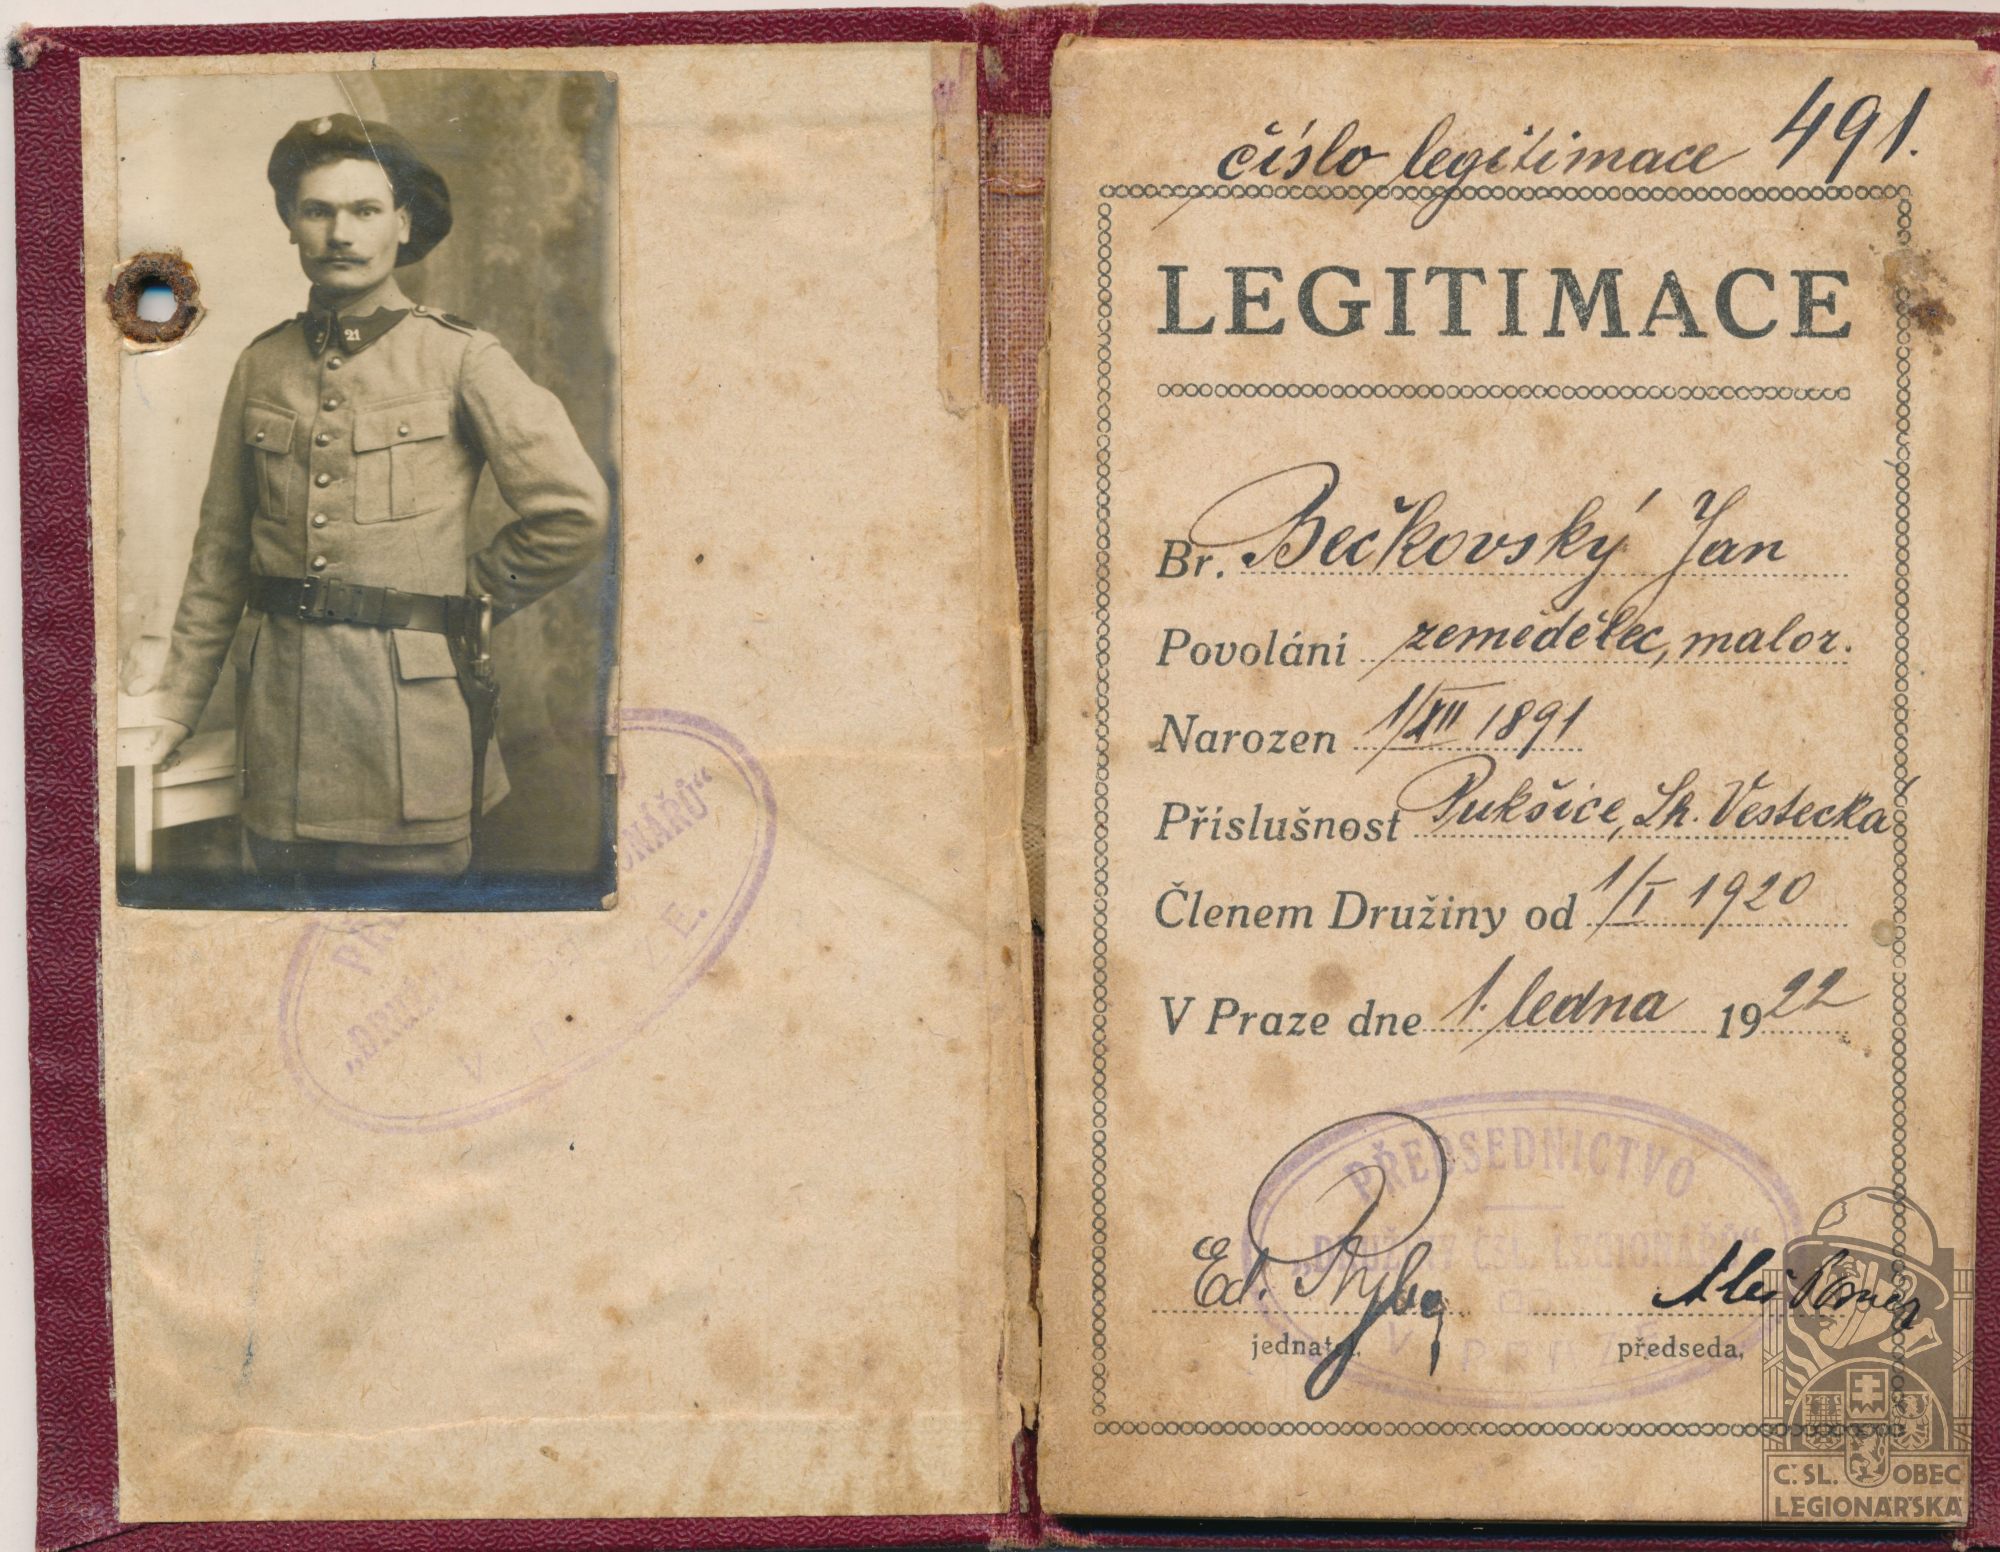 21
číslo legitimace 491.
LEGITIMACE
Br. Bečkovský Jan
Povoláni zemědělec, malor.
Narozen 1/XII 1891
Příslušnost Pukšice, Lh. Vestecká
Členem Družiny od 1/I 1920
V Praze dne 1. ledna 1922
PŘEDSEDNICTVO
„DRUŽINY ČSL. LEGIONÁŘŮ“
V PRAZE
Ed. Ryba
jednatel.
předseda,
Č. SL. OBEC
LEGIONÁŘSKÁ